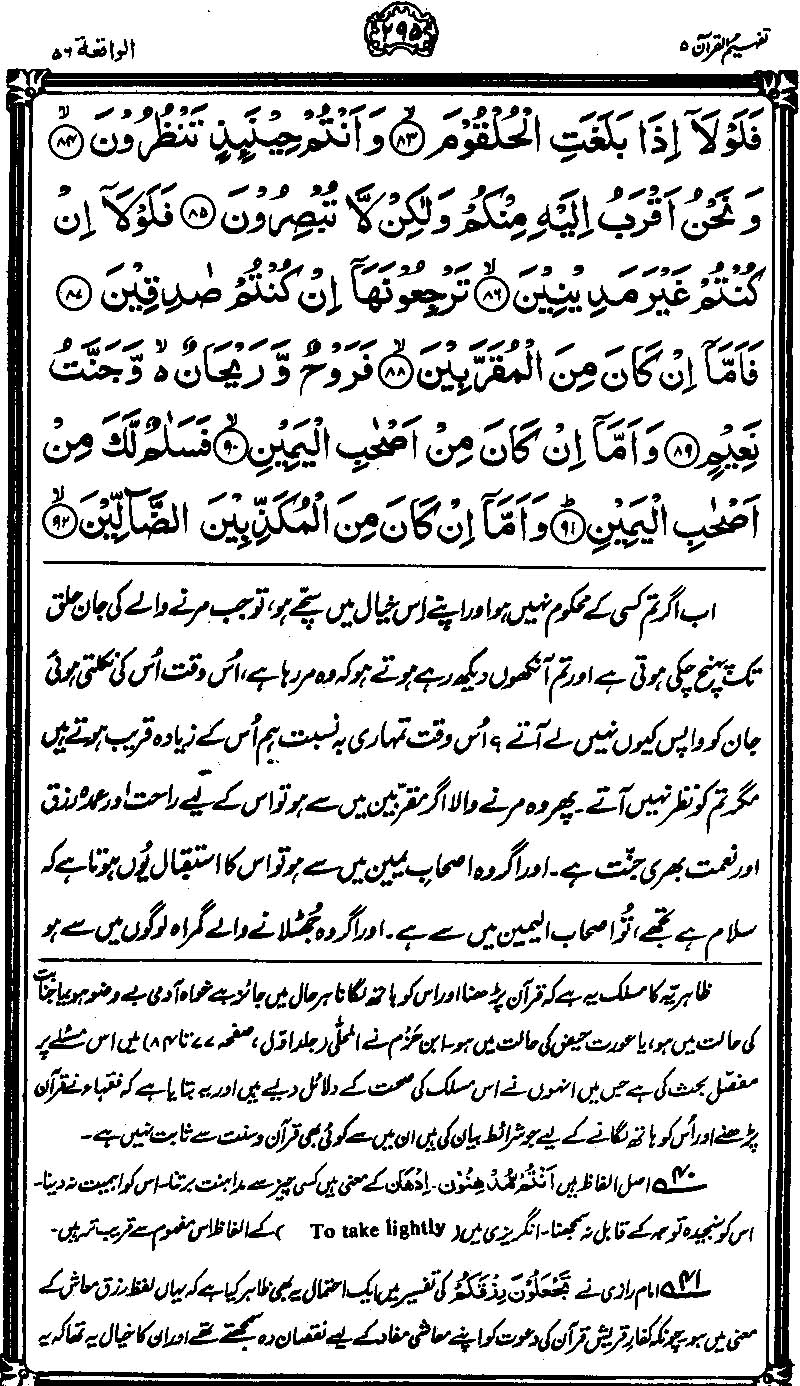 تفہیم القرآن ۵
۲۹۵
الواقعۃ ۵۶
فَلَوْلَآ اِذَا بَلَغَتِ الْحُلْقُوْمَ ﴿۸۳﴾ۙ وَاَنْتُمْ حِيْنَئِذٍ تَنْظُرُوْنَ ﴿۸۴﴾ۙ
وَنَحْنُ اَقْرَبُ اِلَيْهِ مِنْكُمْ وَلٰكِنْ لَّا تُبْصِرُوْنَ ﴿۸۵﴾ فَلَوْلَآ اِنْ
كُنْتُمْ غَيْرَ مَدِيْنِيْنَ ﴿۸۶﴾ۙ تَرْجِعُوْنَهَآ اِنْ كُنْتُمْ صٰدِقِيْنَ ﴿۸۷﴾
فَاَمَّآ اِنْ كَانَ مِنَ الْمُقَرَّبِيْنَ ﴿۸۸﴾ۙ فَرَوْحٌ وَّرَيْحَانٌ ۙ وَّجَنَّتُ
نَعِيْمٍ ﴿۸۹﴾ وَاَمَّآ اِنْ كَانَ مِنْ اَصْحٰبِ الْيَمِيْنِ ﴿۹۰﴾ۙ فَسَلٰمٌ لَّكَ مِنْ
اَصْحٰبِ الْيَمِيْنِ ﴿۹۱﴾ؕ وَاَمَّآ اِنْ كَانَ مِنَ الْمُكَذِّبِيْنَ الضَّآلِّيْنَ ﴿۹۲﴾ۙ
اب اگر تم کسی کے محکوم نہیں ہو اور اپنے اس خیال میں سچّے ہو، تو جب مرنے والے کی جان حلق
تک پہنچ چکی ہوتی ہے اور تم آنکھوں دیکھ رہے ہوتے ہو کہ وہ مر رہا ہے، اُس وقت اُس کی نکلتی ہوئی
جان کو واپس کیوں نہیں لے آتے ؟ اُس وقت تمہاری بہ نسبت ہم اُس کے زیادہ قریب ہوتے ہیں
مگر تم کو نظر نہیں آتے۔ پھر وہ مرنے والا اگر مقربین میں سے ہو تو اس کے لیے راحت اور عمدہ رزق
اور نعمت بھری جنّت ہے۔ اور اگر وہ اصحاب یمین میں سے ہو تو اس کا استقبال یُوں ہوتا ہے کہ
سلام ہے تجھے، تُو اصحاب الیمین میں سے ہے۔ اور اگر وہ جھُٹلانے والے گمراہ لوگوں میں سے ہو
ظاہریّہ کا مسلک یہ ہے کہ قرآن پڑھنا اور اس کو ہاتھ لگانا ہر حال میں جائز ہے خواہ آدمی بے وضو ہو، یا جنابت
کی حالت میں ہو، یا عورت حیض کی حالت میں ہو۔ ابن حزم نے المُحلّٰی (جلد اوّل، صفحہ ۷۷ تا ۸۴) میں اس مسئلے پر
مفصّل بحث کی ہے جس میں انہوں نے اس مسلک کی صحت کے دلائل دیے ہیں اور یہ بتایا ہے کہ فقہاء نے قرآن
پڑھنے اور اُس کو ہاتھ لگانے کے لیے جو شرائط بیان کی ہیں ان میں سے کوئی بھی قرآن و سنت سے ثابت نہیں ہے۔
۴۰ اصل الفاظ ہیں اَنْتُمْ مُّدْهِنُوْنَ۔ اِدْهَان کے معنی ہیں کسی چیز سے مداہنت برتنا۔ اس کو اہمیت نہ دینا۔
اس کو سنجیدہ توجہ کے قابل نہ سمجھنا۔ انگریزی میں (To take lightly) کے الفاظ اس مفہوم سے قریب تر ہیں۔
۴۱ امام رازی نے تَجْعَلُوْنَ رِزْقَكُمْ کی تفسیر میں ایک احتمال یہ بھی ظاہر کیا ہے کہ یہاں لفظ رزق معاش کے
معنی میں ہو۔ چونکہ کفار قریش قرآن کی دعوت کو اپنے معاشی مفاد کے لیے نقصان دہ سمجھتے تھے اور ان کا خیال یہ تھا کہ یہ